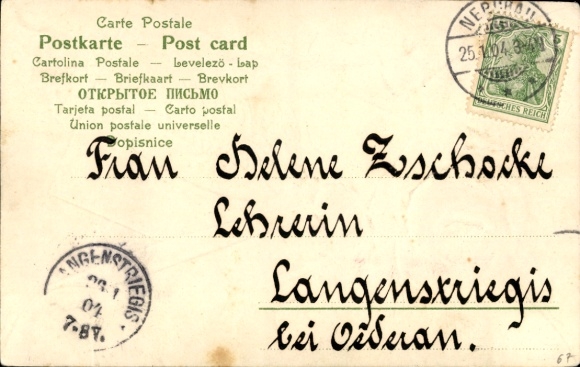 Carte Postale
Postkarte — Post card
Cartolina Postale — Levelező-Lap
Brefkort — Briefkaart — Brevkort
ОТКРЫТОЕ ПИСЬМО
Tarjeta postal — Carto postal
Union postale universelle
Dopisnice
NERCHAU
25.1.04. 3-4N
DEUTSCHES REICH
Frau Helene Zschocke
Lehrerin
Langenstriegis
bei Oederan.
LANGENSTRIEGIS
04
7-8V.
67